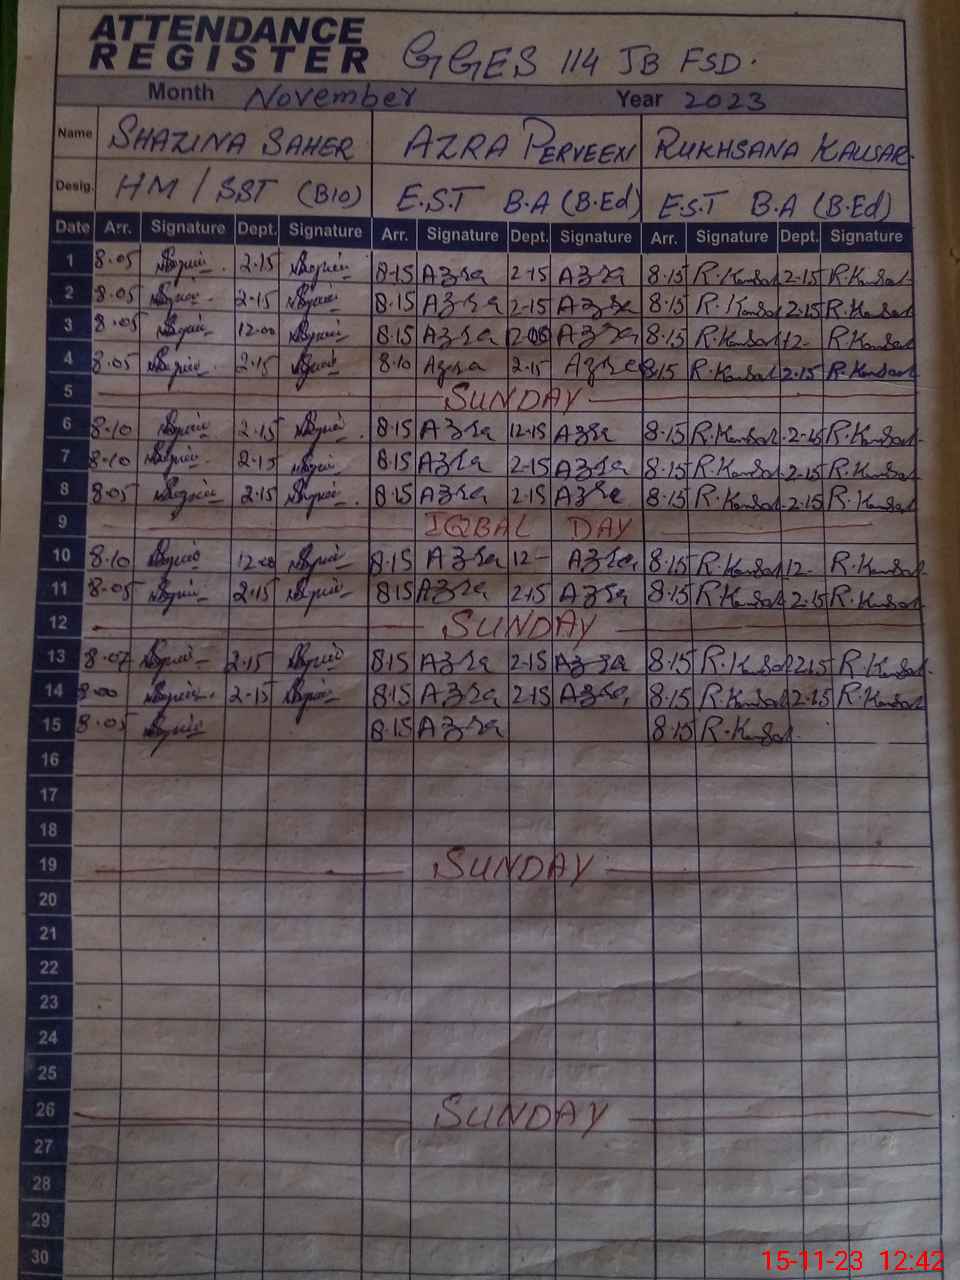 ATTENDANCE
REGISTER GGES 114 JB FSD.
Month November Year 2023
Name SHAZINA SAHER AZRA PERVEEN RUKHSANA KAUSAR.
Desig. HM / SST (BIO) E.S.T B.A (B.Ed) E.S.T B.A (B.Ed)
Date Arr. Signature Dept. Signature Arr. Signature Dept. Signature Arr. Signature Dept. Signature
1 8.05 2.15 8.15 Azra 2.15 Azra 8.15 R.Kausar 2.15 R.Kausar
2 8.05 2.15 8.15 Azra 2.15 Azra 8.15 R.Kausar 2.15 R.Kausar
3 8.05 12.00 8.15 Azra 12.00 Azra 8.15 R.Kausar 12- R.Kausar
4 8.05 2.15 8.10 Azra 2.15 Azra 8.15 R.Kausar 2.15 R.Kausar
5 SUNDAY
6 8.10 2.15 8.15 Azra 12.15 Azra 8.15 R.Kausar 2.15 R.Kausar
7 8.10 2.15 8.15 Azra 2.15 Azra 8.15 R.Kausar 2.15 R.Kausar
8 8.05 2.15 8.15 Azra 2.15 Azra 8.15 R.Kausar 2.15 R.Kausar
9 IQBAL DAY
10 8.10 12.00 8.15 Azra 12- Azra 8.15 R.Kausar 12- R.Kausar
11 8.05 2.15 8.15 Azra 2.15 Azra 8.15 R.Kausar 2.15 R.Kausar
12 SUNDAY
13 8.07 2.15 8.15 Azra 2.15 Azra 8.15 R.Kausar 2.15 R.Kausar
14 8.00 2.15 8.15 Azra 2.15 Azra 8.15 R.Kausar 2.15 R.Kausar
15 8.05 8.15 Azra 8.15 R.Kausar
16
17
18
19 SUNDAY
20
21
22
23
24
25
26 SUNDAY
27
28
29
30
15-11-23 12:42